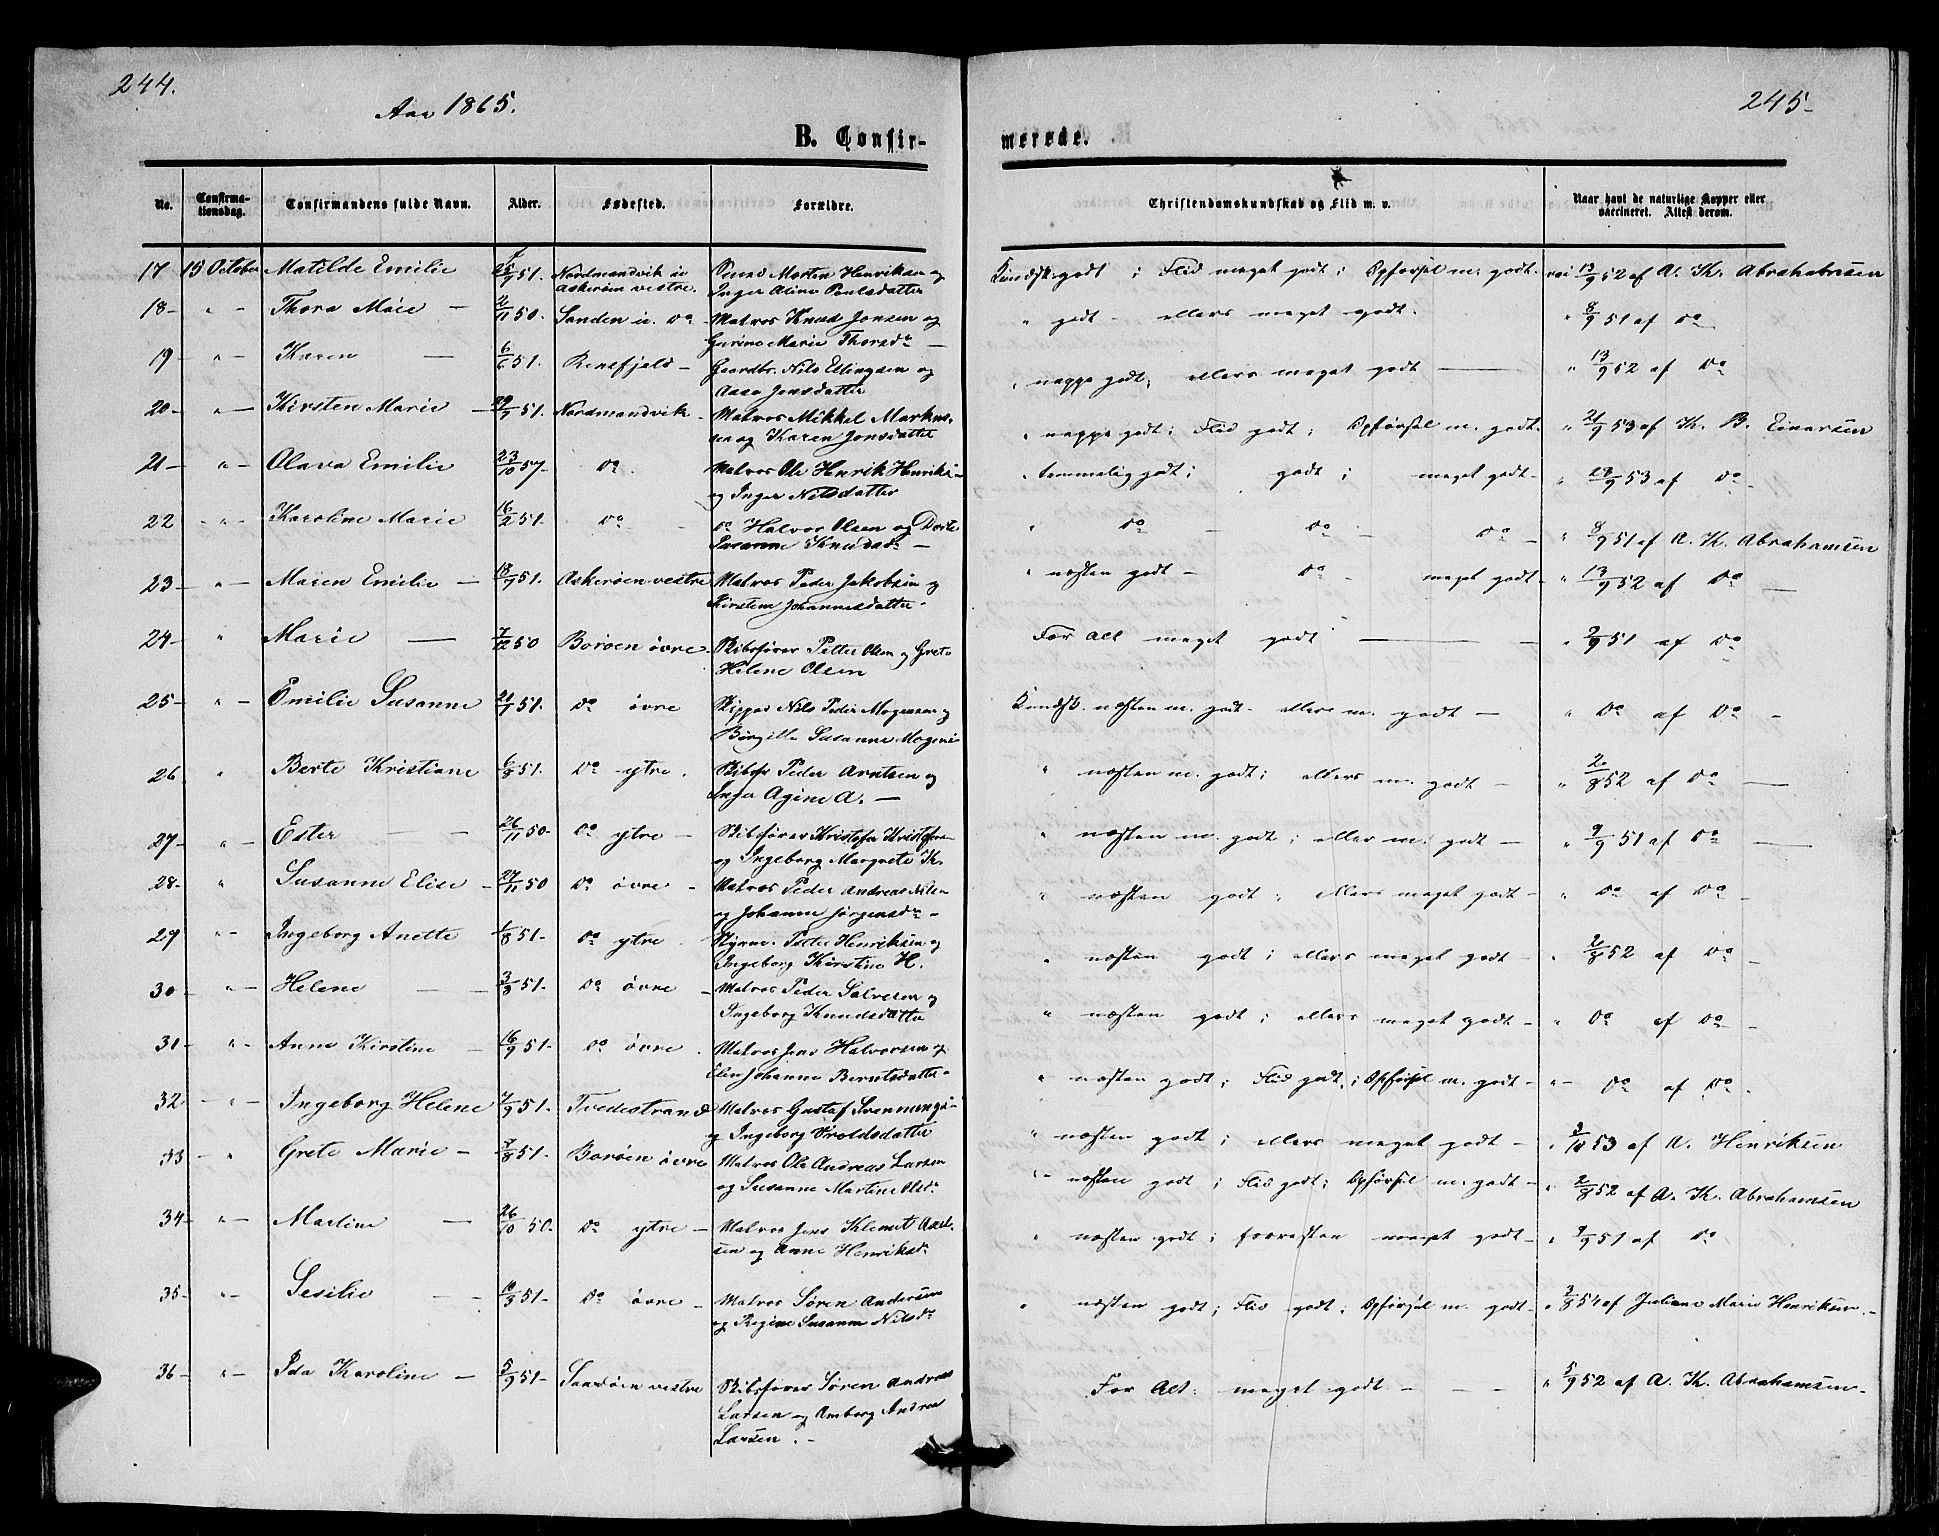 244.
Aar 1865.
245-
B. Confir-
merede.
No. Confirma-tionsdag. Confirmandens fulde Navn. Alder. Fødested. Forældre. Christendomskundskab og Flid m. v. Naar havt de naturlige Kopper eller vaccineret. Attest derom.
17 15 October Matilde Emilie 25/9 51. Nordmandvik u Morten Henriksen og Kundsk. godt ; Flid meget godt ; Opførsel m. godt. vac 13/9 52 af A. K. Abrahamsen
Askerøen vestre. Inger Aline Poulsdatter
18- " - Thora Marie - 2/11 50. Sanden u. Do- Matros Knud Jensen og " godt - ellers meget godt. " 8/9 51 af Do
Gurine Marie Thorsdr -
19 " - Karen - 6/6 51. Rensfjeld- Gaardbr. Nils Ellingsen og " neppe godt; ellers meget godt - " 13/9 52 af Do
Aase Jensdatter
20- " - Kirsten Marie - 29/9 51. Nordmandvik - Matros Mikkel Markus-
sen og Karen Jonsdatter " neppe godt; Flid godt; Opførsel m. godt. " 21/9 53 af K. B. Einarsen
21- " - Olava Emilie 23/10 57- Do. Matros Ole Henrik Henriksen " temmelig godt; godt ; meget godt- " 28/9 53 af Do-
og Inger Nilsdatter
22 - " - Karoline Marie 16/2 51- Do - Do Halvor Olsen og Dorte " Do - Do - Do - " 8/9 51 af A. K. Abrahamsen
Susanne Knudsdr -
23- " - Maren Emilie - 18/9 51. Askerøen vestre Matros Peder Jakobsen og " næsten godt - Do - meget godt- " 13/9 52 af Do -
Kirstine Johannesdatter.
24- " Marie - 7/12 50 Borøen øvre- Skibsfører Petter Olsen og Grete For Alt meget godt - " 9/9 51 af Do
Helene Olsen
25- " - Emilie Susanne 21/7 51. Do øvre Skipper Nils Peder Mogensen og Kundsk. næsten m. godt - ellers m. godt - " Do af Do -
Birgitte Susanne Mogens-
26 " Berte Kristiane 6/8 51. Do ytre. Skibsfr Peder Arntsen og " næsten m. godt; ellers m. godt - " 2/8 52 af Do -
Inger Agine A. -
27- " - Ester - - 26/11 50- Do ytre - Skibsfører Kristofer Kristofersen " næsten m. godt ; ellers m. godt - " 9/9 51 af Do -
og Ingeborg Margrete K.
28- " Susanne Elise - 27/11 50 Do øvre - Matros Peder Andreas Nilsen " næsten godt ; ellers meget godt - " Do af Do -
og Johanne Jørgensdr -
29 " - Ingeborg Anette 1/8 51- Do ytre. Styrm. Peder Henriksen og " næsten godt ; ellers meget godt - " 2/8 52 af Do -
Ingeborg Kirstine H.
30- " - Helene - - 3/8 51- Do øvre - Matros Peder Salvesen og " næsten godt ; ellers meget godt - " Do af Do -
Ingeborg Knudsdatter
31- " - Anne Kirstine - 16/9 51- Do øvre. Matros Jens Halvorsen og " næsten godt ; Flid godt ; Opførsel m. godt- " - Do af Do -
Elen Johanne Berntsdatter.
32 - " - Ingeborg Helene 7/9 51- Tvedestrand Matros Gustaf Svenningsen " næsten godt ; ellers meget godt - " 3/10 53 af A. Henriksen
og Ingeborg Aroldsdatter
33 - " Grete Marie - 7/8 51- Borøen øvre Matros Ole Andreas Larsen " - næsten godt ; Flid godt; Opførsel m. godt - " 2/8 52 af A. K. Abrahamsen
og Susanne Martine Olsdr
34- " - Martine - 26/10 50- Do ytre - Matros Jens Klemet Axel- " næsten godt ; forresten meget godt - " 9/9 51 af Do
sen og Anne Henriksdr
35- " - Sesilie - - 10/3 51- Do øvre - Matros Søren Andersen " næsten godt ; Flid godt ; Opførsel m. godt- " 2/8 54 af Juliane Marie Henriksen.-
og Regine Susanne Nilsdr
36- " - Ida Karoline - 5/9 51- Sandøen vestre Skibsfører Søren Andreas For Alt: meget godt - - - " 5/9 52 af A. K. Abrahamsen-
Larsen og Amborg Andrea
Larsen. -